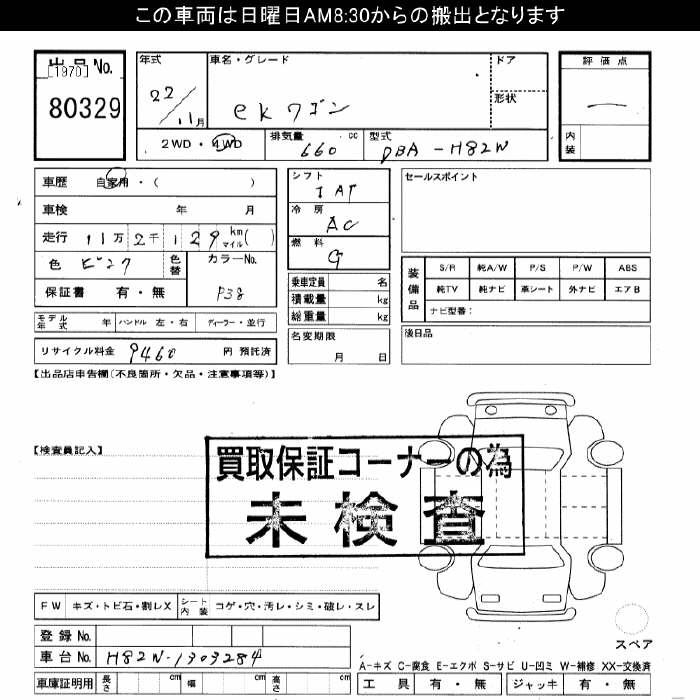 この車両は日曜日AM8:30からの搬出となります
出品No.
[1970]
80329
年式
22/11月
車名・グレード
ekワゴン
ドア
形状
評価点
―
内装
2WD・4WD
排気量
660 cc
型式
DBA-H82W
車歴 自家用・( )
車検 年 月
走行 11万2千129 km マイル( )
色 ピンク
色替
カラーNo.
P38
保証書 有・無
シフト
IAT
冷房
AC
燃料
G
乗車定員 名
積載量 kg
総重量 kg
名変期限
月 日
セールスポイント
装備品
S/R 純A/W P/S P/W ABS
純TV 純ナビ 革シート 外ナビ エアB
ナビ型番:
後日品
モデル年式 年 ハンドル 左・右 ディーラー・並行
リサイクル料金 9460 円 預託済
【出品店申告欄(不良箇所・欠品・注意事項等)】
【検査員記入】
買取保証コーナーの為
未検査
FW キズ・トビ石・割レX
シート内装 コゲ・穴・汚レ・シミ・破レ・スレ
スペア
登録No.
車台No. H82W-1303284
A-キズ C-腐食 E-エクボ S-サビ U-凹ミ W-補修 XX-交換済
車庫証明用 長さ cm 幅 cm 高さ cm
工具 有・無 ジャッキ 有・無